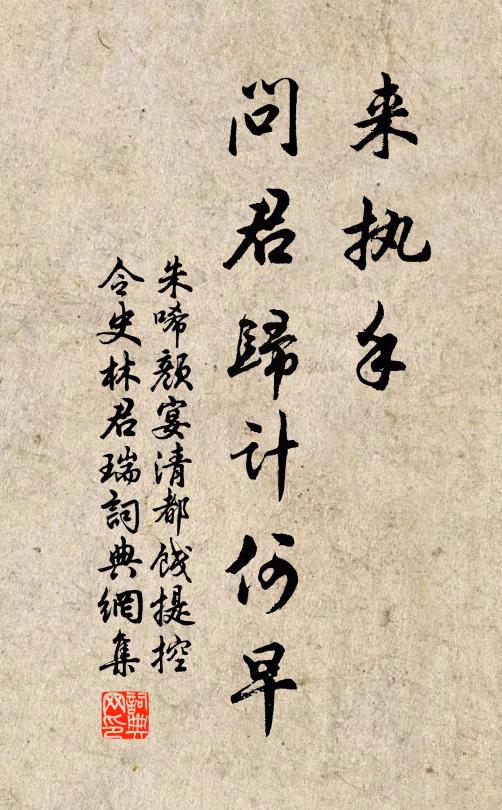 来执手
問君歸计何早
朱唏颜宴清都饯提控
令史林君瑞詞典網集
詞典
网印